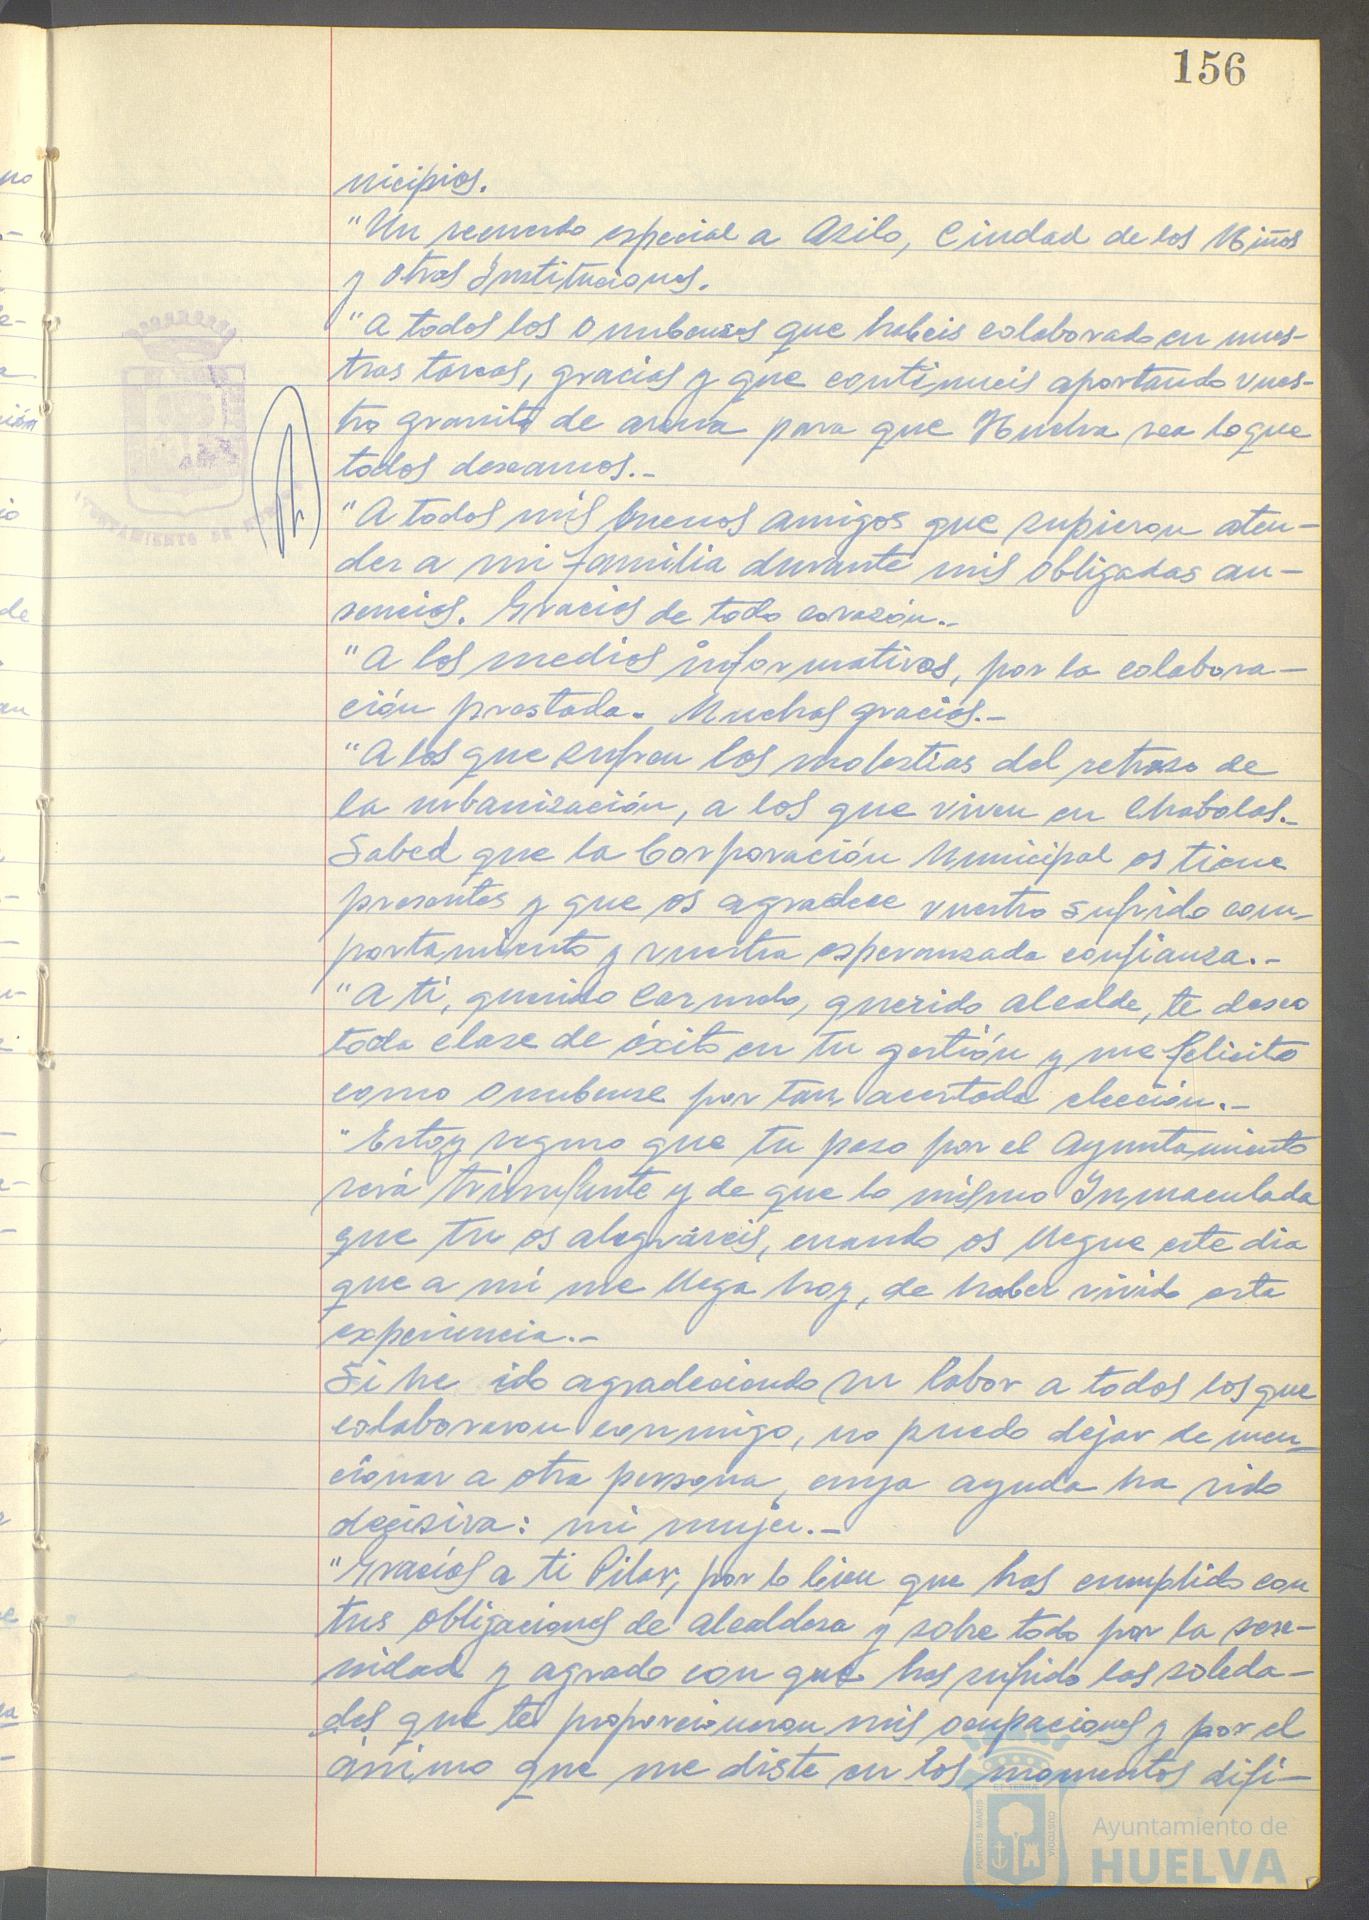 156
nicipios.
"Un recuerdo especial a Asilo, Ciudad de los Niños
y otras Instituciones.
"A todos los onubenses que habeis colaborado en nues-
tras tareas, gracias y que continueis aportando vues-
tro granito de arena para que Huelva sea lo que
todos deseamos.-
"A todos mis buenos amigos que supieron aten-
der a mi familia durante mis obligadas au-
sencias. Gracias de todo corazón.-
"A los medios informativos, por la colabora-
ción prestada. Muchas gracias.-
"A los que sufren las molestias del retraso de
la urbanización, a los que viven en Chabolas.-
Sabed que la Corporación Municipal os tiene
presentes y que os agradece vuestro sufrido com-
portamiento y vuestra esperanzada confianza.-
"A ti, querido, querido alcalde, te deseo
toda clase de éxito en tu gestión y me felicito
como onubense por tan acertada elección.-
"Estoy seguro que tu paso por el Ayuntamiento
será triunfante y de que lo mismo Inmaculada
que tu os alegráreis, cuando os llegue este dia
que a mi me llega hoy, de haber vivido esta
experiencia.-
Si he ido agradeciendo su labor a todos los que
colaboraron conmigo, no puedo dejar de men-
cionar a otra persona, cuya ayuda ha sido
decisiva: mi mujer.-
"Gracias a ti Pilar, por lo bien que has cumplido con
tus obligaciones de alcaldesa y sobre todo por la sere-
nidad y agrado con que has sufrido las soleda-
des que te proporcionaron mis ocupaciones y por el
ánimo que me diste en los momentos difi-
AYUNTAMIENTO DE HUELVA
PORTUS MARIS
ET TERRAE
CUSTODIA
Ayuntamiento de
HUELVA